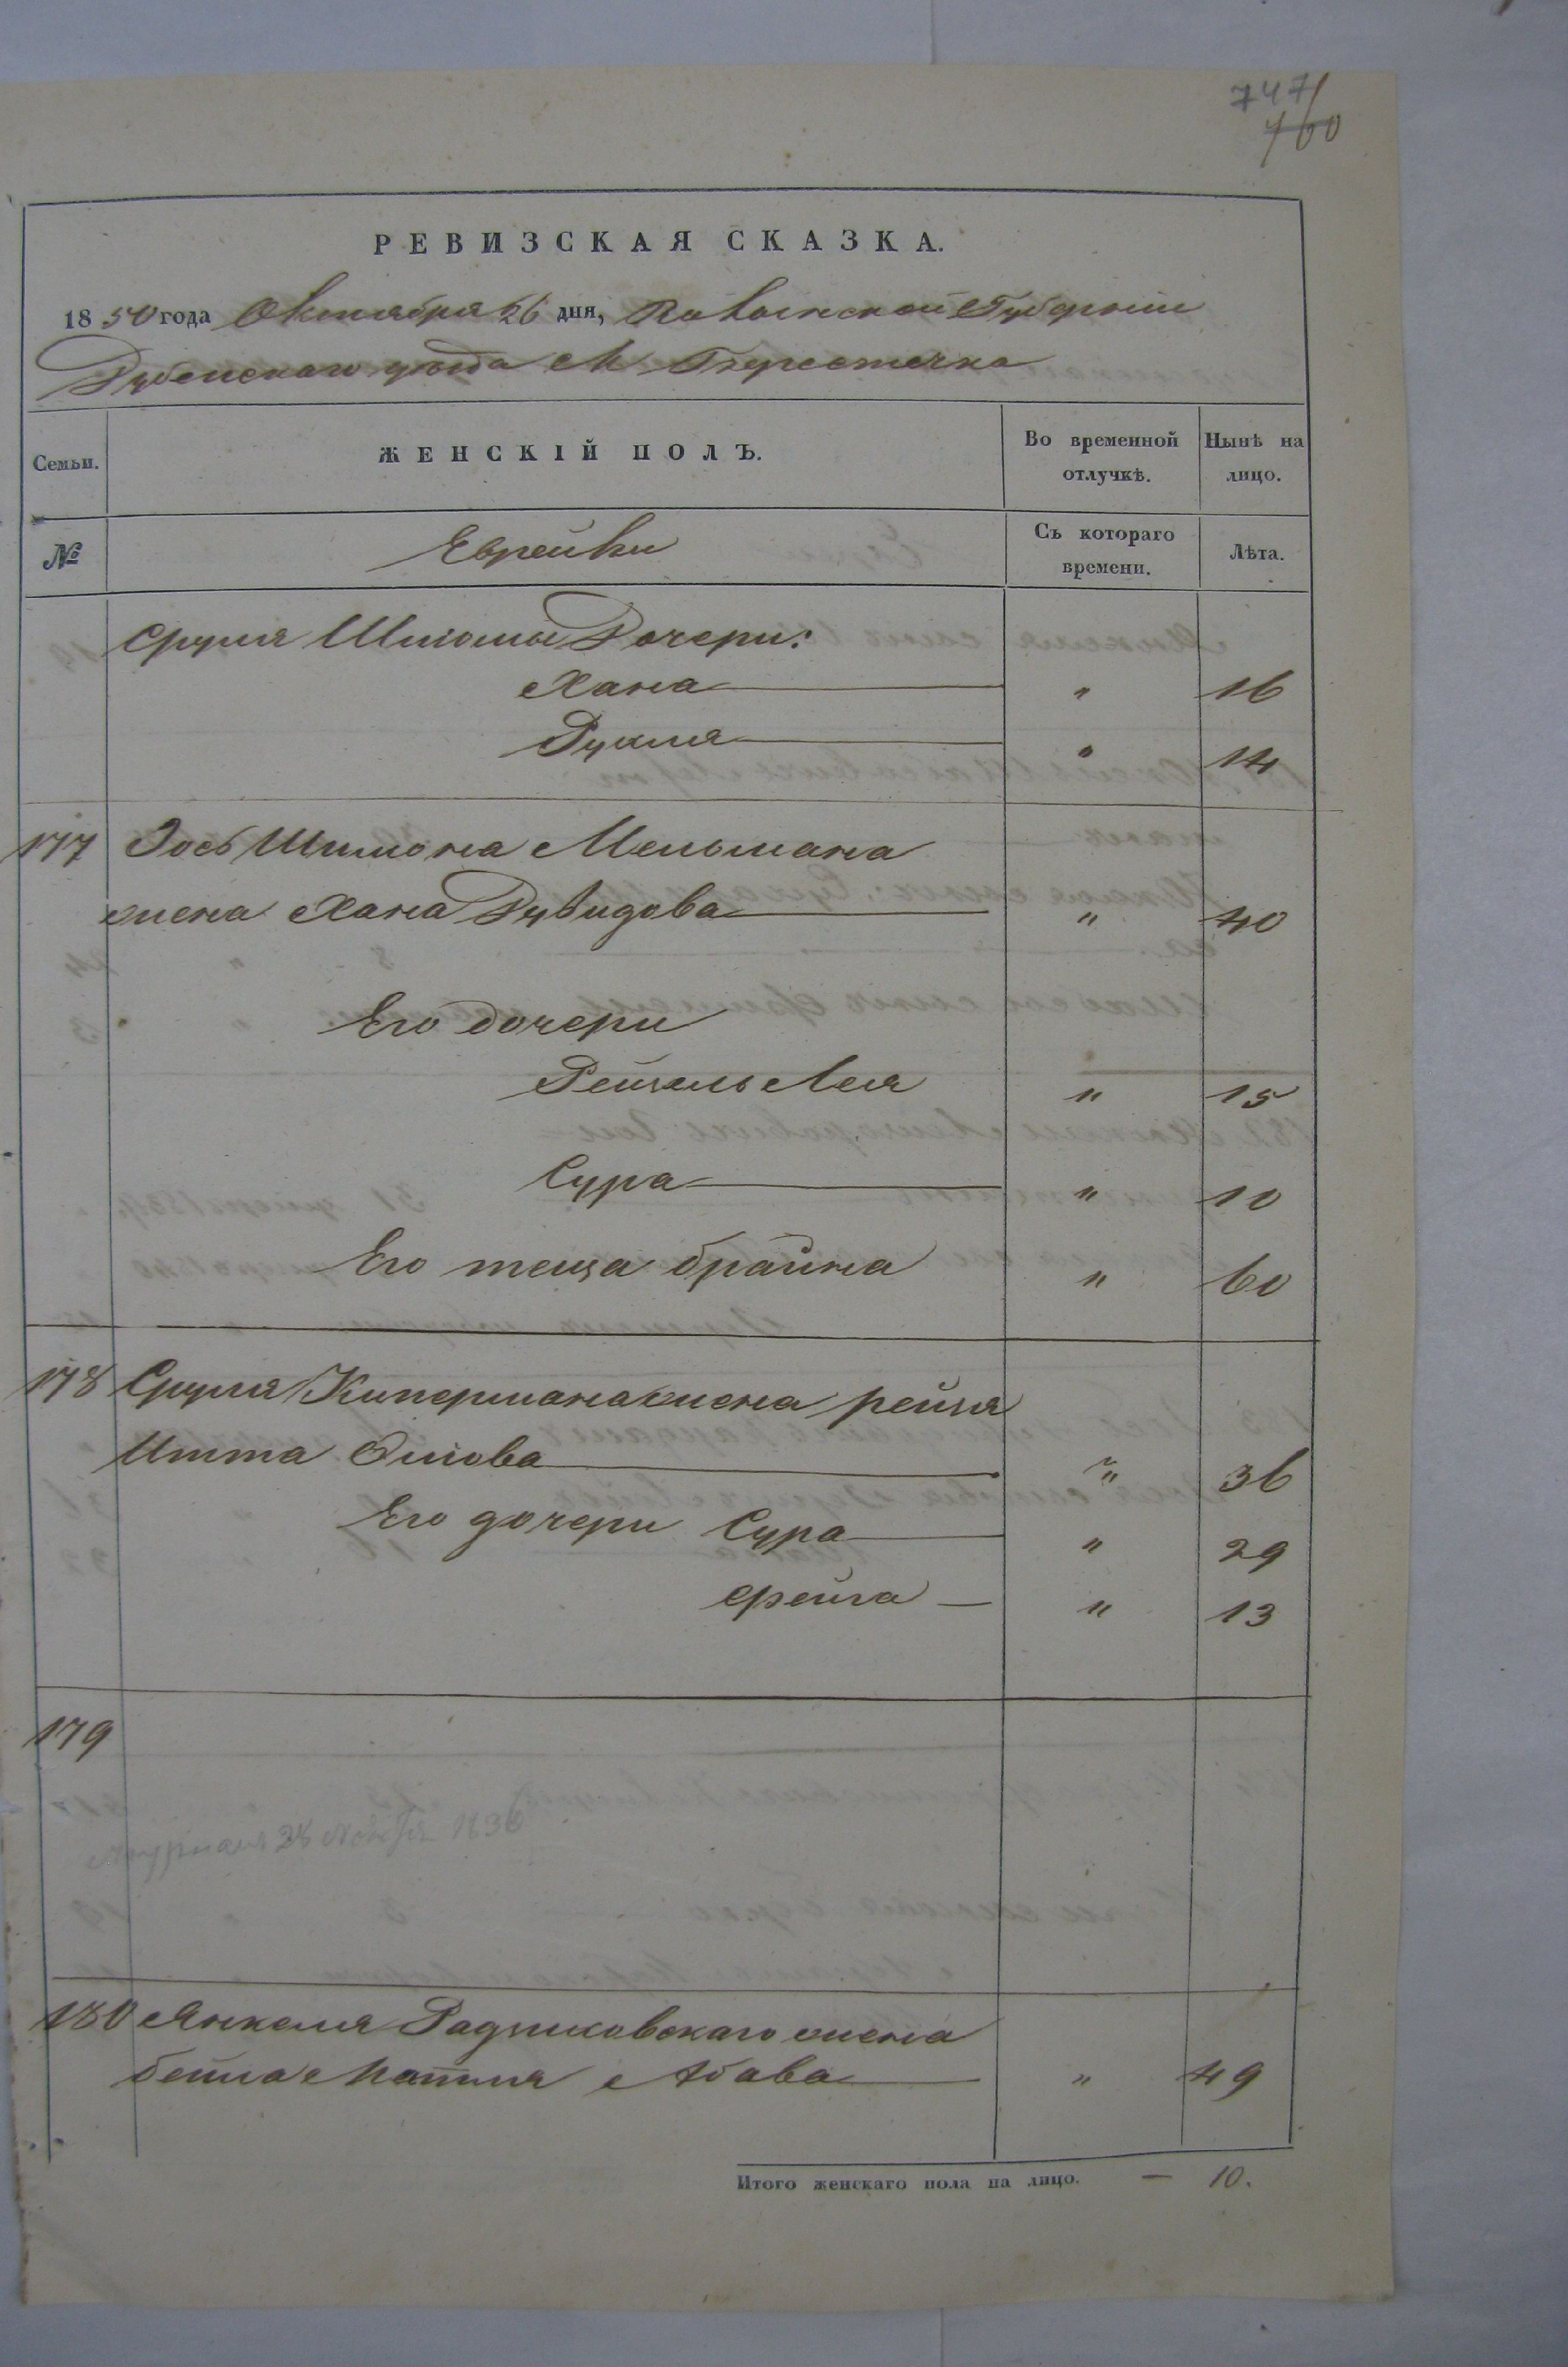 747
760
РЕВИЗСКАЯ СКАЗКА.
1850 года Октября 26 дня, Волынской Губернии
Дубенскаго уѣзда М Берестечка
Семьи.
ЖЕНСКІЙ ПОЛЪ.
Во временной отлучкѣ.
Нынѣ на лицо.
№
Еврейки
Съ котораго времени.
Лѣта.
Сруля Шліомы Дочери:
Хана " 16
Рухля " 14
177 Зось Шимона Мельмана
жена Хана Дувидова " 40
Его дочери
Рейзель Лея " 15
Сура " 10
Его теща брайна " 60
178 Сруля Кипермана жена рейзя
Итта " 36
Его дочери Сура " 29
фейга " 13
179
1836
180 Янкеля Радзиховскаго жена
бейла Матля Абова " 49
Итого женскаго пола на лицо. — 10.